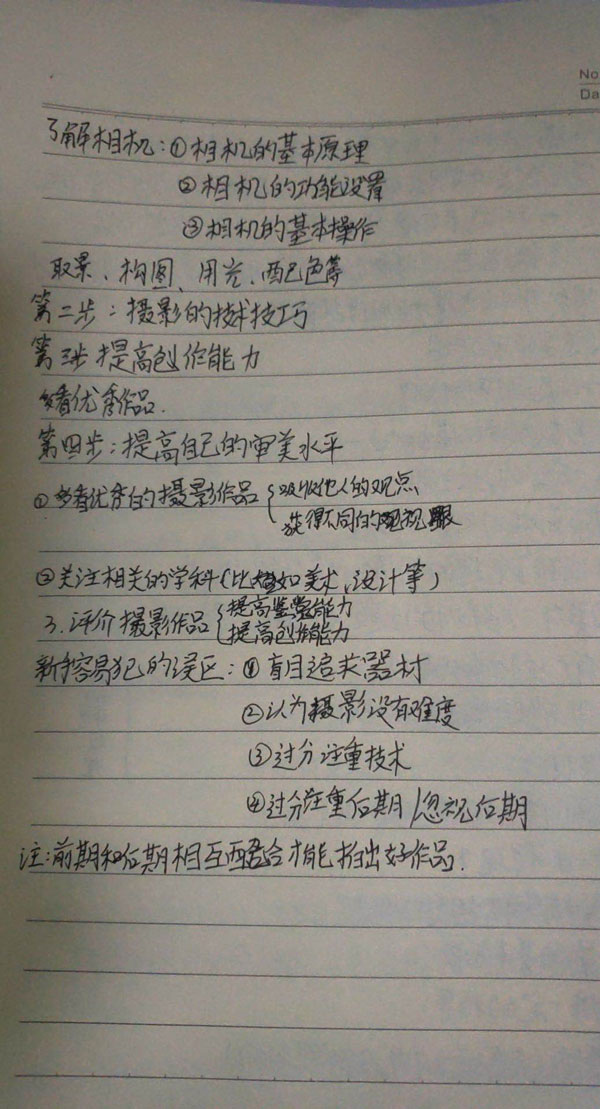 No
Da
了解相机:①相机的基本原理
②相机的功能设置
③相机的基本操作
取景、构图、用光、配色等
第二步:摄影的技术技巧
第三步 提高创作能力
多看优秀作品.
第四步:提高自己的审美水平
①多看优秀的摄影作品{吸收他人的观点
获得不同的视眼
②关注相关的学科(比如美术、设计等)
3.评价摄影作品{提高鉴赏能力
提高创作能力
新手容易犯的误区:①盲目追求器材
②认为摄影没有难度
③过分注重技术
④过分注重后期/忽视后期
注:前期和后期相互配合才能拍出好作品.